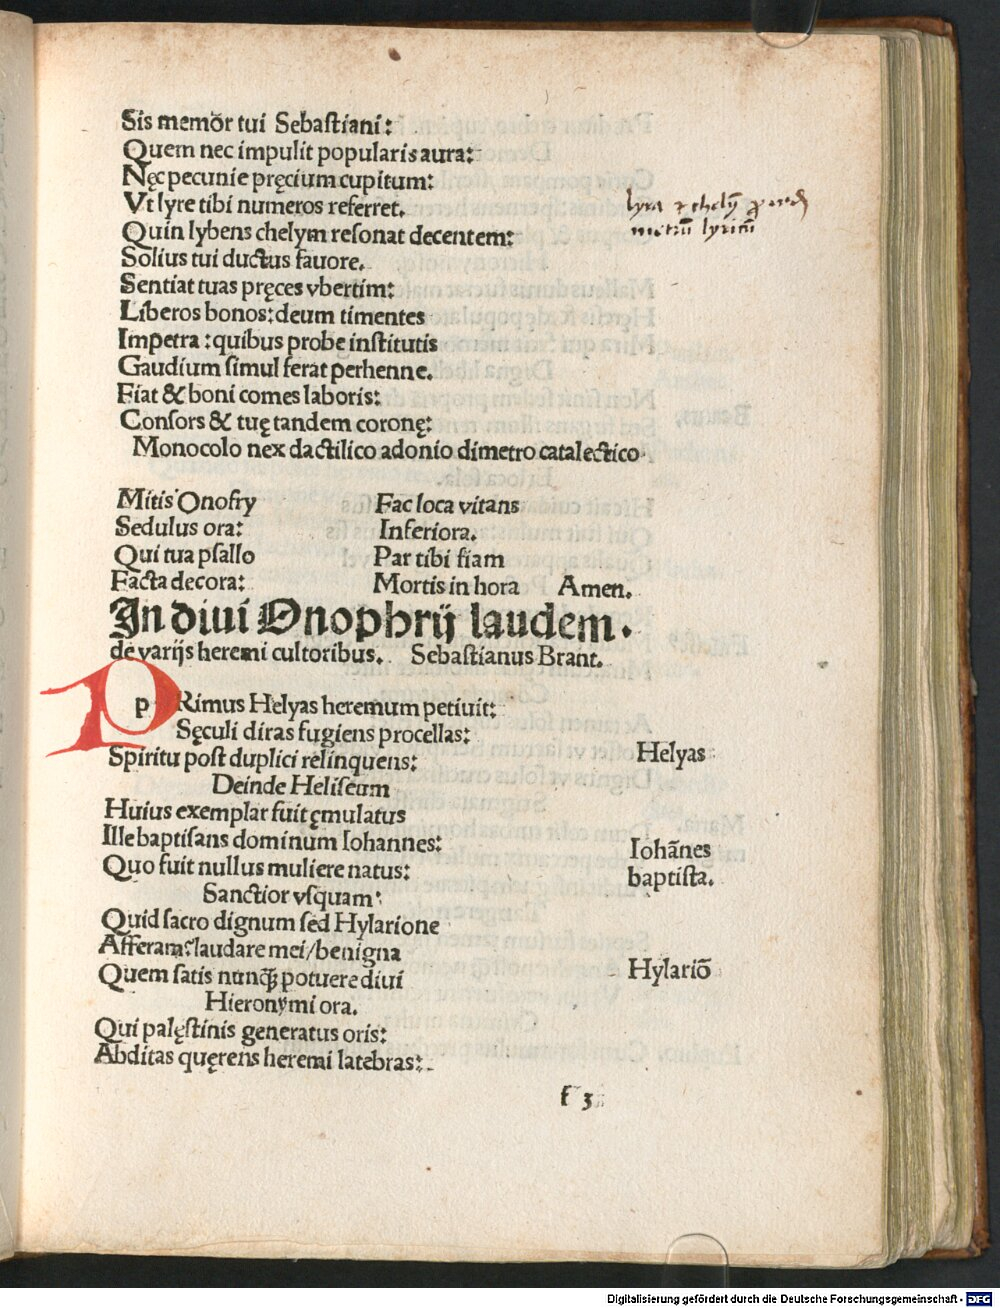 Sis memõr tui Sebastiani:
Quem nec impulit popularis aura:
Nęc pecunie pręcium cupitum:
Vt lyre tibi numeros referret.
Quin lybens chelym resonat decentem:
Solius tui ductus fauore.
Sentiat tuas pręces vbertim:
Liberos bonos: deum timentes
Impetra: quibus probe institutis
Gaudium simul ferat perhenne.
Fiat & boni comes laboris:
Consors & tuę tandem coronę:
Monocolo nex dactilico adonio dimetro catalectico
lyra
metrũ lyricũ
Mitis Onofry
Sedulus ora:
Qui tua psallo
Facta decora:
Fac loca vitans
Inferiora.
Par tibi fiam
Mortis in hora Amen.
In diui Onophrij laudem.
de varijs heremi cultoribus. Sebastianus Brant.
pRimus Helyas heremum petiuit:
Sęculi diras fugiens procellas:
Spiritu post duplici relinquens:
Deinde Heliseum
Huius exemplar fuit ęmulatus
Ille baptisans dominum Iohannes:
Quo fuit nullus muliere natus:
Sanctior vsquam:
Quid sacro dignum sed Hylarione
Afferam: laudare mei/benigna
Quem satis nunꝗ̃ potuere diui
Hieronymi ora.
Qui palęstinis generatus oris:
Abditas quęrens heremi latebras:
Helyas
Iohãnes
baptista.
Hylariõ
f 3
Digitalisierung gefördert durch die Deutsche Forschungsgemeinschaft - DFG